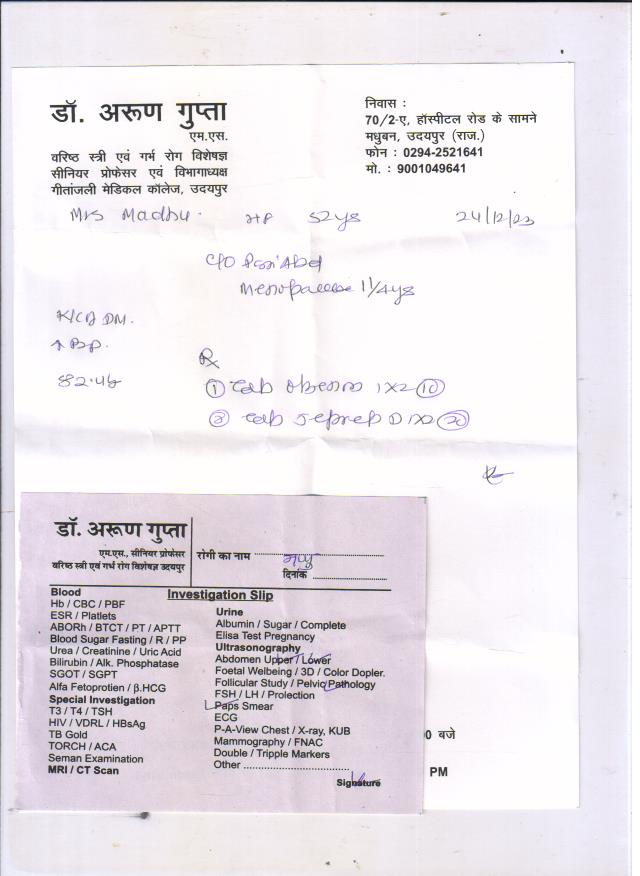 डॉ. अरूण गुप्ता
एम.एस.
वरिष्ठ स्त्री एवं गर्भ रोग विशेषज्ञ
सीनियर प्रोफेसर एवं विभागाध्यक्ष
गीतांजली मेडिकल कॉलेज, उदयपुर
निवास :
70/2-ए, हॉस्पीटल रोड के सामने
मधुबन, उदयपुर (राज.)
फोन : 0294-2521641
मो. : 9001049641
Mrs Madhu. 52ys 24/12/23
C/O Pain Abd
Menopause 1 1/4 ys
K/C/O DM.
↑ BP.
82.46
Rx
① Tab 1x2 ⑩
② Tab D 1x2 ⑳
डॉ. अरूण गुप्ता
एम.एस., सीनियर प्रोफेसर
वरिष्ठ स्त्री एवं गर्भ रोग विशेषज्ञ उदयपुर
रोगी का नाम मधु
दिनांक
Investigation Slip
Blood
Hb / CBC / PBF
ESR / Platlets
ABORh / BTCT / PT / APTT
Blood Sugar Fasting / R / PP
Urea / Creatinine / Uric Acid
Bilirubin / Alk. Phosphatase
SGOT / SGPT
Alfa Fetoprotien / β.HCG
Special Investigation
T3 / T4 / TSH
HIV / VDRL / HBsAg
TB Gold
TORCH / ACA
Seman Examination
MRI / CT Scan
Urine
Albumin / Sugar / Complete
Elisa Test Pregnancy
Ultrasonography
Abdomen Upper / Lower
Foetal Welbeing / 3D / Color Dopler.
Follicular Study / Pelvic Pathology
FSH / LH / Prolection
Paps Smear
ECG
P-A-View Chest / X-ray, KUB
Mammography / FNAC
Double / Tripple Markers
Other ..............................
Signature
0 बजे
PM